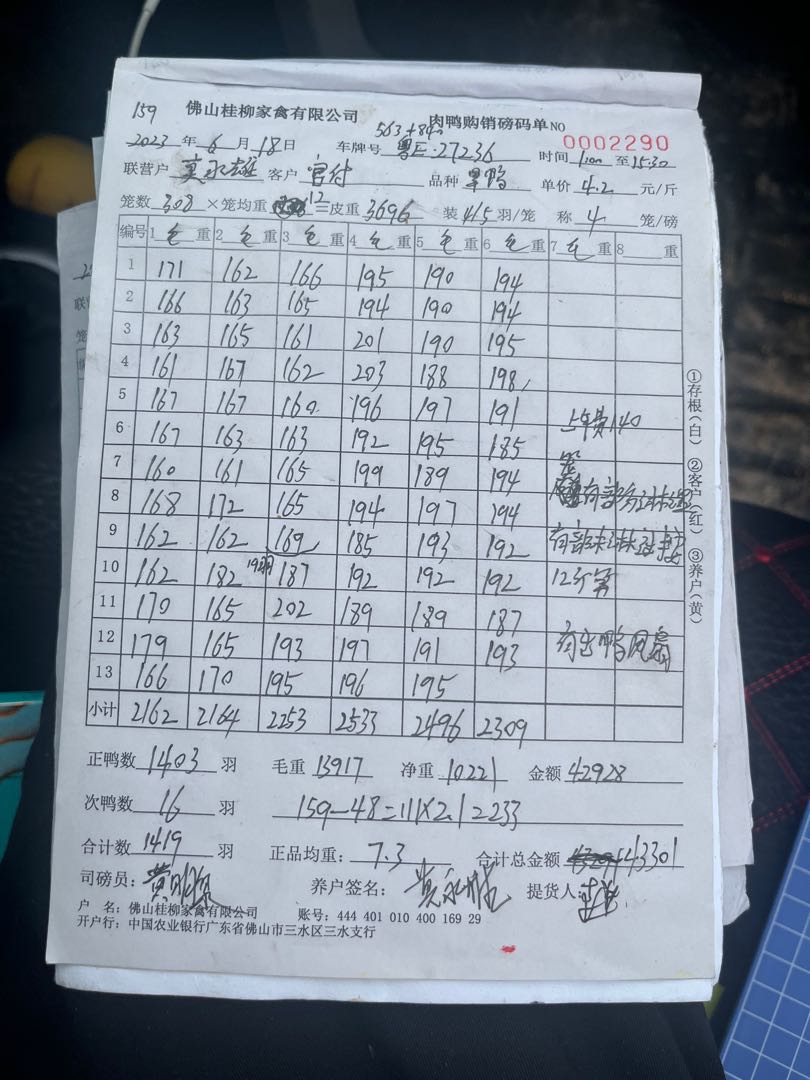 159 佛山桂柳家禽有限公司 肉鸭购销磅码单NO 0002290
563+840
2023年6月18日 车牌号 粤E·27236 时间 1100 至 15:30
联营户 莫永雄 客户 官付 品种 旱鸭 单价 4.2 元/斤
笼数 308 ×笼均重 12 =皮重 3696 装 4/5 羽/笼 称 4 笼/磅
编号 1 毛 重 2 毛 重 3 毛 重 4 毛 重 5 毛 重 6 毛 重 7 毛 重 8 重
1 171 162 166 195 190 194
2 166 163 165 194 190 194
3 163 165 161 201 190 195
4 161 167 162 203 188 198
5 167 167 160 196 197 191
6 167 163 163 192 195 185 140
7 160 161 165 199 189 194
8 168 172 165 194 197 194
9 162 162 169 185 193 192
10 162 182 187 192 192 192 12个
11 170 165 202 189 189 187
12 179 165 193 197 191 193 有出鸭
13 166 170 195 196 195
小计 2162 2164 2253 2533 2496 2309
正鸭数 1403 羽 毛重 13917 净重 10221 金额 42928
次鸭数 16 羽 159-48=111×2.1=233
合计数 1419 羽 正品均重: 7.3 合计总金额 43301
司磅员: 养户签名: 提货人:
户 名: 佛山桂柳家禽有限公司 账号: 444 401 010 400 169 29
开户行: 中国农业银行广东省佛山市三水区三水支行
①存根(白) ②客户(红) ③养户(黄)